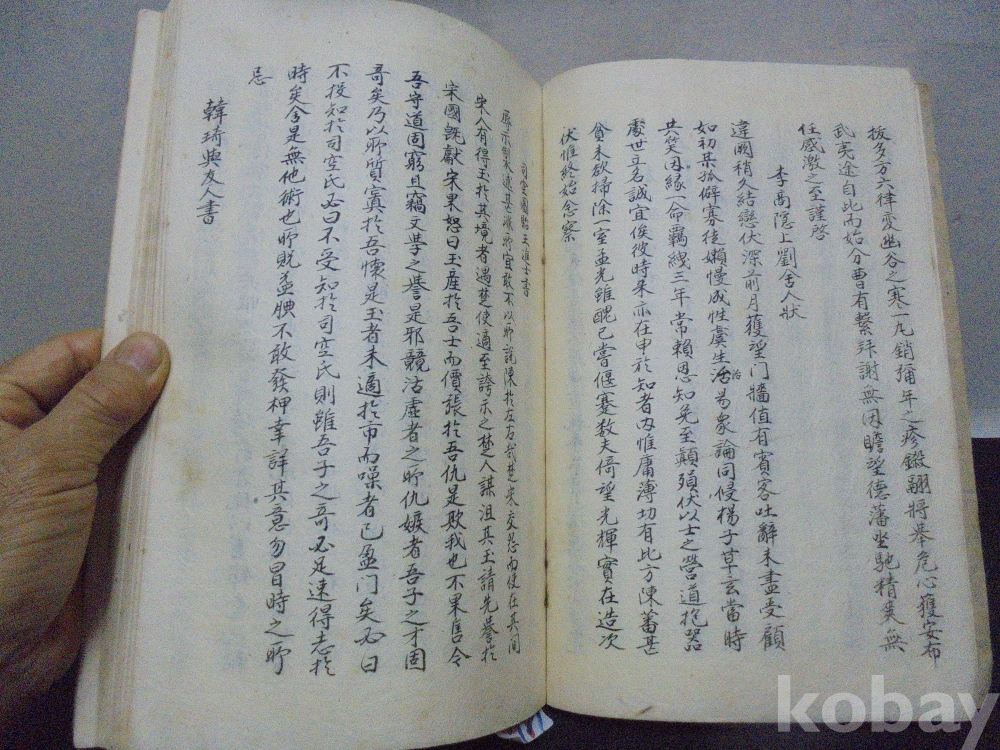 拔多方六律變幽谷之寒一丸銷彌年之疹鎩翮將舉危心獲安布
武夷途自此而始分曹有繫拜謝無因瞻望德藩坐馳精爽無
任感激之至謹啓
李商隱上劉舍人狀
違闊稍久結戀伏深前月獲望門牆值有賓客吐辭未盡受顧
如初某孤僻寡徒嬾慢成性虞生治易象論同侵楊子草玄當時
共笑因緣一命羈絏三年常賴恩知免至顛頊伏以士之營道抱器
處世立名誠宜俟彼時來亦在申於知者內惟庸薄切有比方陳蕃甚
貧未欲掃除一室孟光雖醜已嘗偃蹇數夫倚望光輝實在造次
伏惟終始念察
司空圖與王進士書
宋人有得玉於其境者遇楚使適至誇示之楚人謀沮其玉請先譽於
宋國旣獻宋果怒曰玉產於吾士而價張於吾仇是欺我也不果售今
吾守道固窮且竊文學之譽是邪競沽虛者之所仇嫉者吾子之才固
奇矣乃以所質寘於吾懷是玉者未適於市而噪者已盈門矣必曰
不投知於司空氏必曰不受知於司空氏則雖吾子之奇必足速得志於
時矣舍是無他術也所貺益腆不敢發柙幸詳其意勿冒時之所
忌
韓琦與友人書
kobay